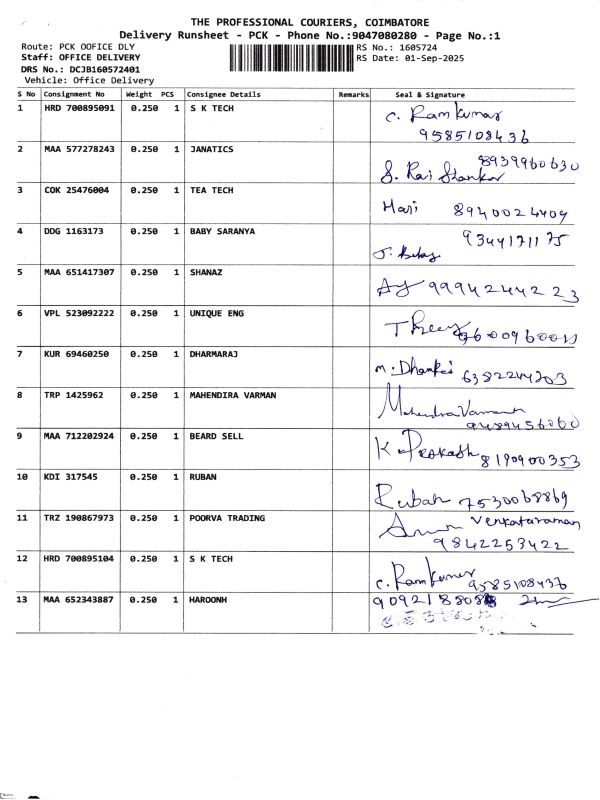 THE PROFESSIONAL COURIERS, COIMBATORE
Delivery Runsheet - PCK - Phone No.:9047080280 - Page No.:1
Route: PCK OOFICE DLY RS No.: 1605724
Staff: OFFICE DELIVERY RS Date: 01-Sep-2025
DRS No.: DCJB160572401
Vehicle: Office Delivery
S No Consignment No Weight PCS Consignee Details Remarks Seal & Signature
1 HRD 700895091 0.250 1 S K TECH C. Ramkumar
9585108436
2 MAA 577278243 0.250 1 JANATICS 8939960630
S. Rai Shankar
3 COK 25476004 0.250 1 TEA TECH Hari 8940024409
4 DDG 1163173 0.250 1 BABY SARANYA 9344171175
J. Baby
5 MAA 651417307 0.250 1 SHANAZ 9994244223
6 VPL 523092222 0.250 1 UNIQUE ENG
7 KUR 69460250 0.250 1 DHARMARAJ 6382244703
8 TRP 1425962 0.250 1 MAHENDIRA VARMAN Mahendra Varman
9489456060
9 MAA 712202924 0.250 1 BEARD SELL K. Prakash 8190900353
10 KDI 317545 0.250 1 RUBAN Ruban 7530068869
11 TRZ 190867973 0.250 1 POORVA TRADING Venkataraman
9842253422
12 HRD 700895104 0.250 1 S K TECH C. Ramkumar 9585108436
13 MAA 652343887 0.250 1 HAROONH